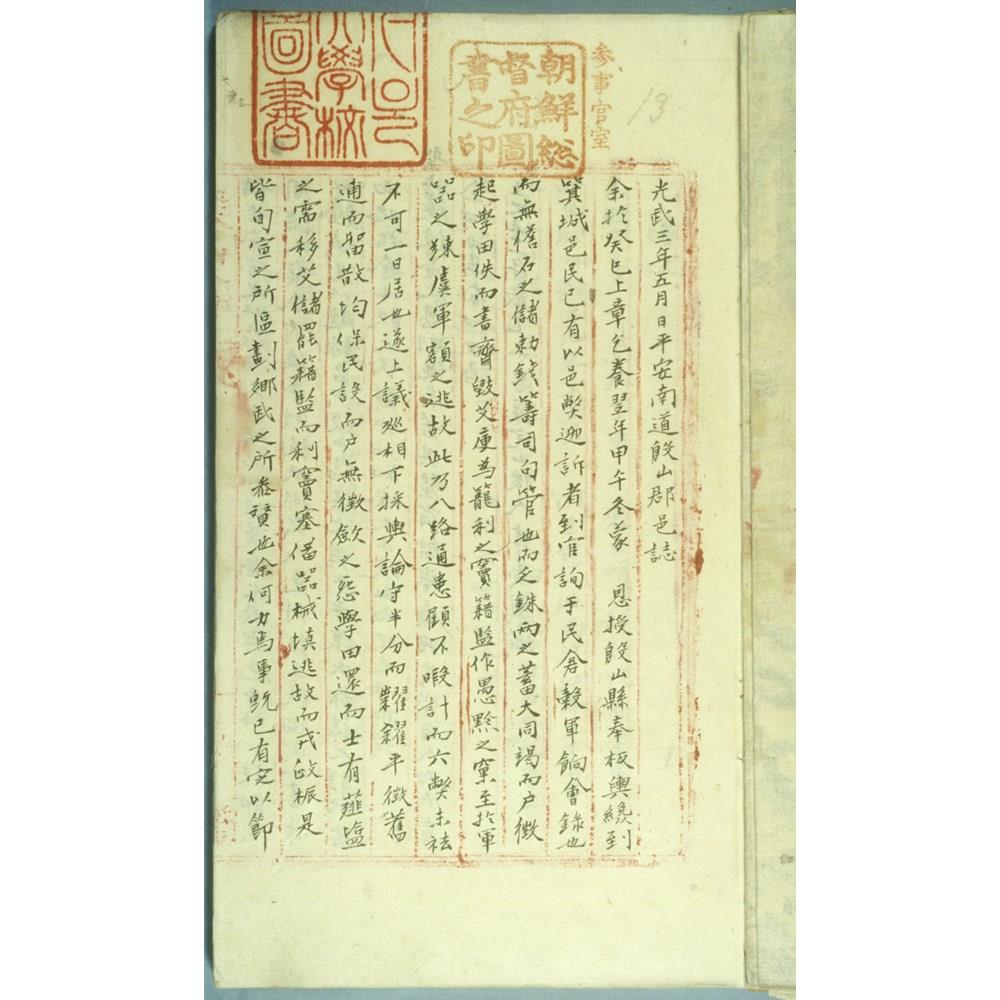 參事官室
19
朝鮮総
督府圖
書之印
大學校
圖書
光武三年五月日平安南道殷山郡邑誌
余於癸巳上章乞養翌年甲午冬蒙 恩授殷山縣奉板輿纔到
箕城邑民已有以邑弊迎訴者到官詢于民倉穀軍餉會錄也
而無儋石之儲勅錢籌司句管也而乏銖兩之蓄大同竭而戶徵
起學田佚而書齋毀艾庫為籠利之竇籍監作愚黔之窠至於軍
器之疎虞軍額之逃故此乃八路通患顧不暇計而六弊未祛
不可一日居也遂上議廵相下採輿論守半分而糶糴平徵舊
逋而留散均保民設而戶無徵斂之怨學田還而士有薤塩
之需移艾儲罷籍監而利竇塞備器械塡逃故而戎政振是
皆旬宣之所區劃鄉武之所叅贊也余何力焉事旣已有定以節